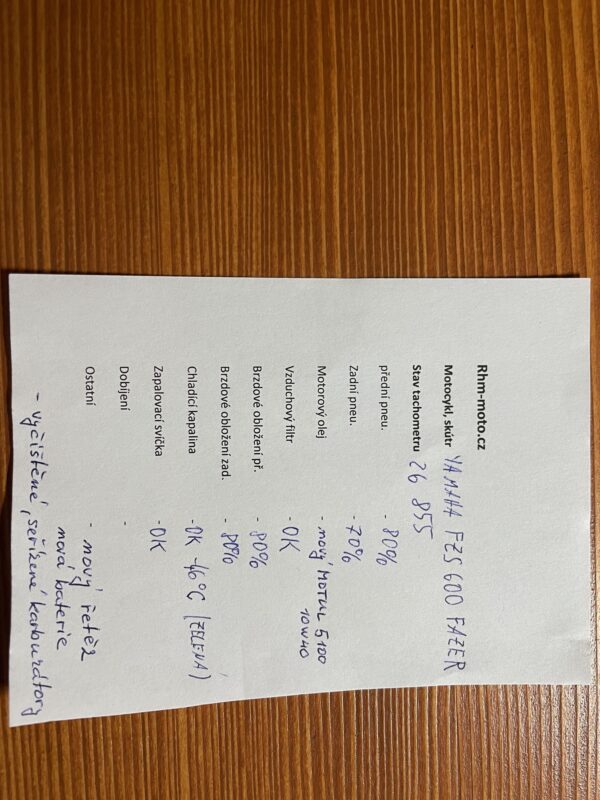 Rhm-moto.cz
Motocykl, skútr YAMAHA FZS 600 FAZER
Stav tachometru 26 855
přední pneu. - 80%
Zadní pneu. - 70%
Motorový olej - nový MOTUL 5100
10W40
Vzduchový filtr - OK
Brzdové obložení př. - 80%
Brzdové obložení zad. - 80%
Chladící kapalina - OK -46°C (ZELENÁ)
Zapalovací svíčka - OK
Dobíjení -
Ostatní - nový řetěz
nová baterie
- vyčištěné, seřízené karburátory